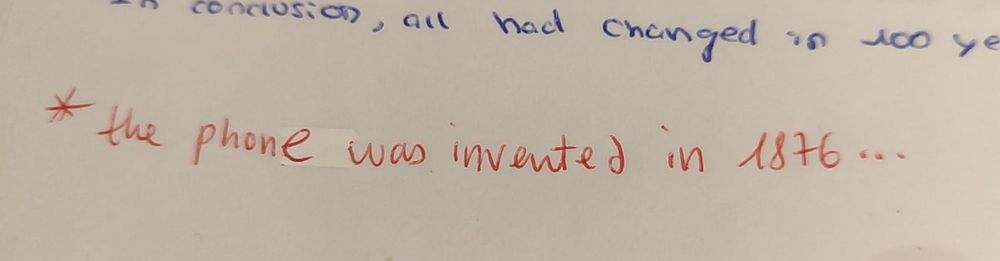 In conclusion, all had changed in 100 ye
* the phone was invented in 1876...